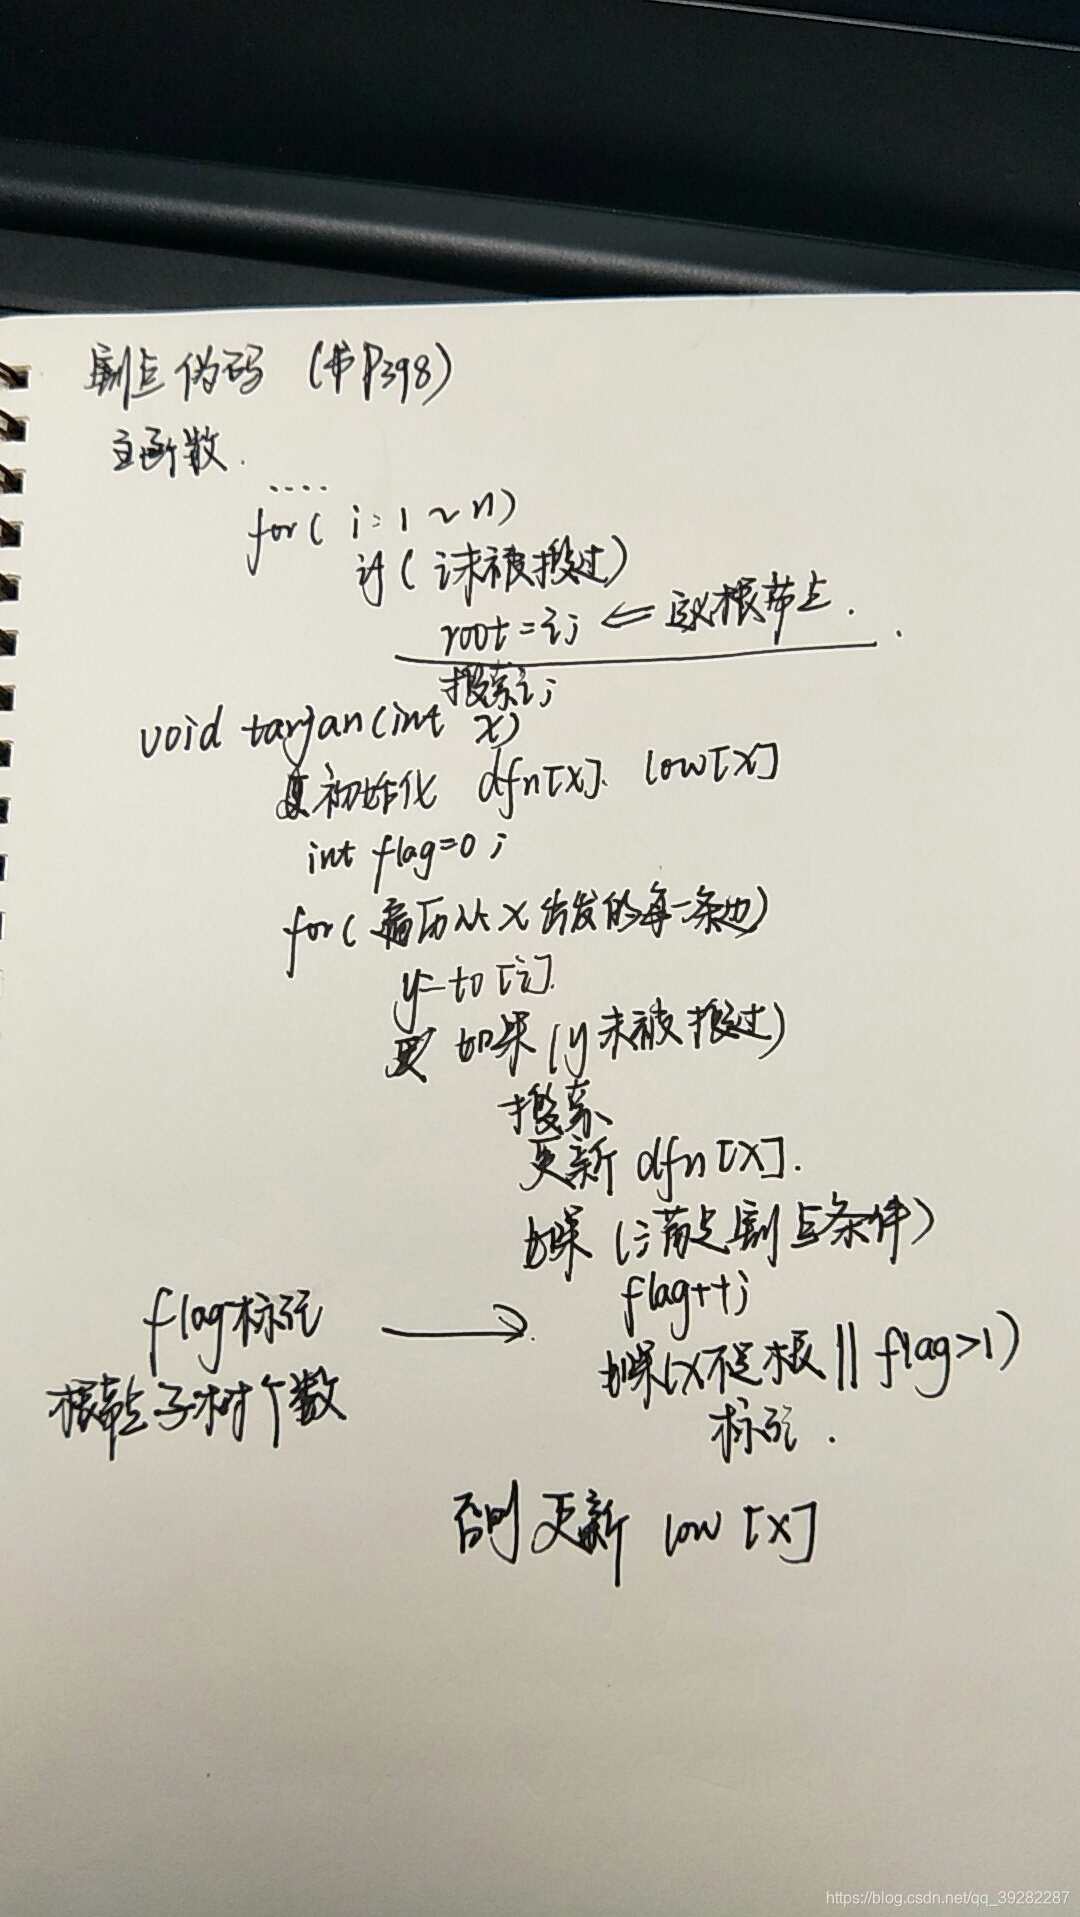 割点伪码 (书P398)
主函数.
....
for( i=1~n)
if( i未被搜过)
root=i; ⇐ 定义根节点.
搜索i;
void tarjan(int x)
初始化 dfn[x]. low[x]
int flag=0;
for( 遍历从x出发的每一条边)
y=to[i].
如果(y未被搜过)
搜索
更新 dfn[x].
如果(i满足割点条件)
flag++;
flag标记 → 如果(x不是根 || flag>1)
根节点子树个数
标记.
否则更新 low[x]
https://blog.csdn.net/qq_39282287